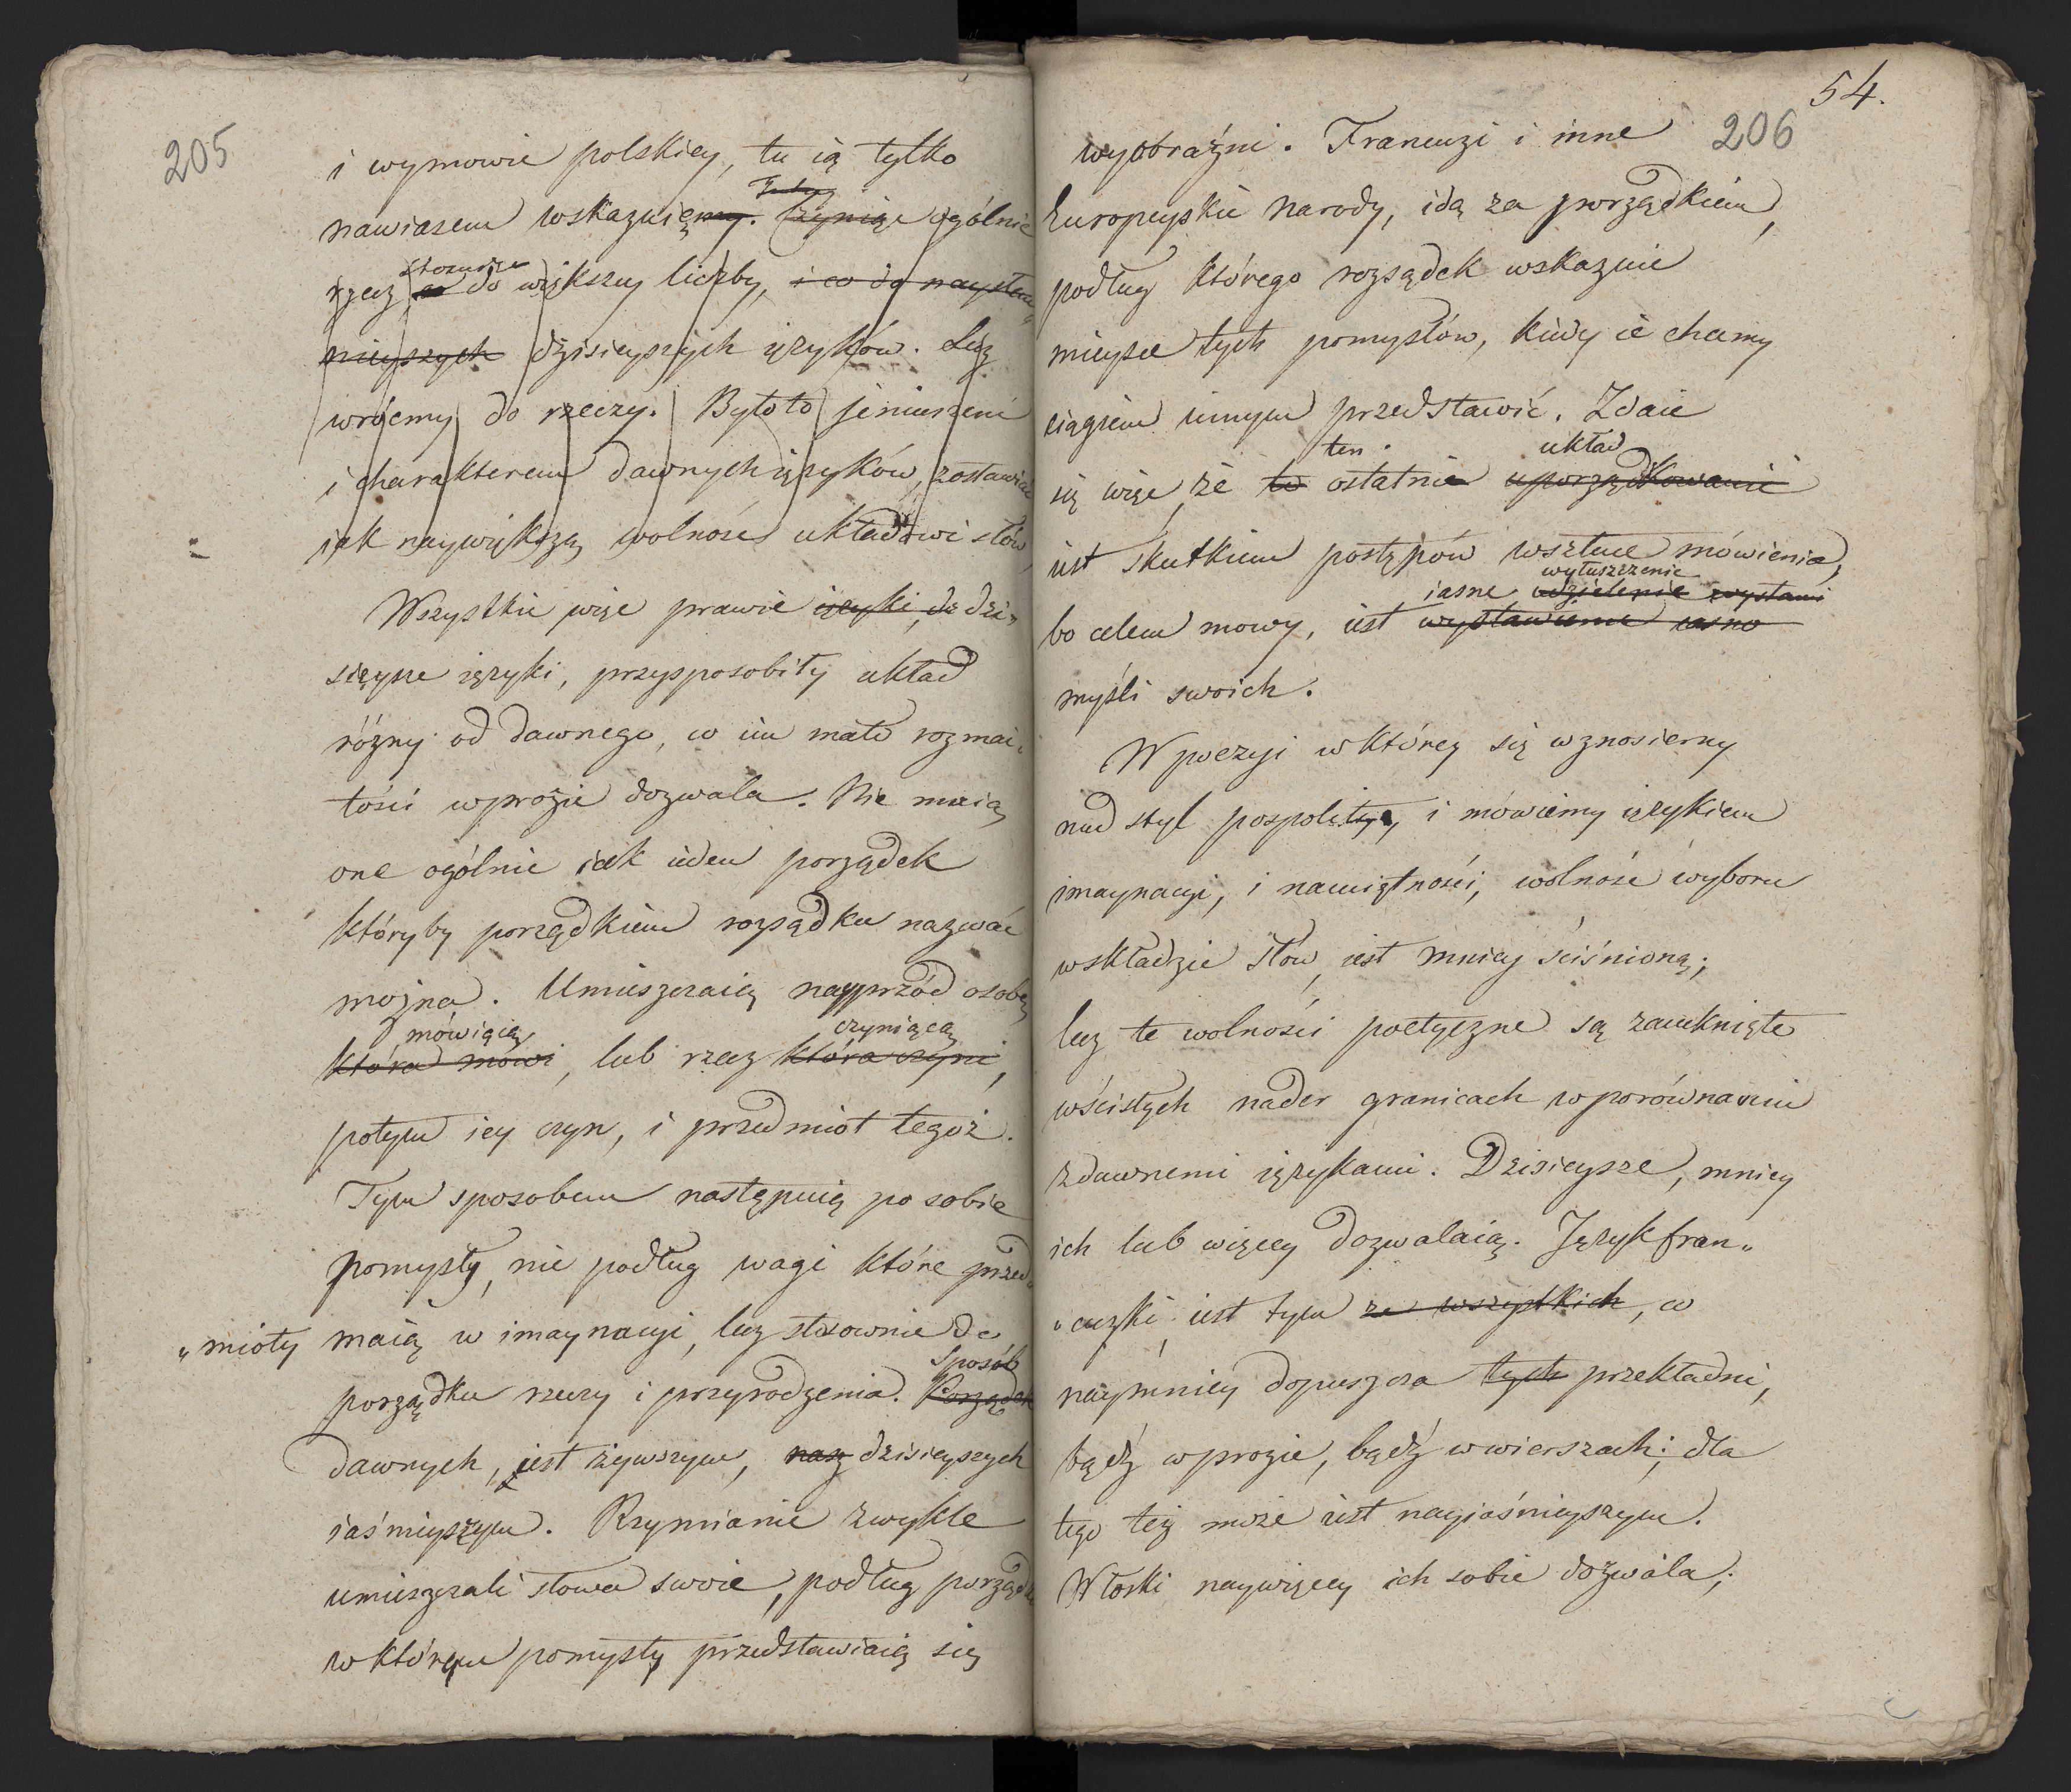 205
i wymowie polskiey, tu ią tylko
nawiasem wskazuięmy. Czyniąc ogólnie
stosuie
rzecz co do większey liczby, i co do
nieyszych dzisieyszych ięzyków. Lecz
wróćmy do rzeczy. Byłoto jeniuszem
i charakterem dawnych ięzyków, zostawiać
iak naywiększą wolność układowi słów,
Wszystkie więc prawie ięzyki, dzi„
sieysze ięzyki, przysposobiły układ
różny od dawnego, co im mało rozmai„
tości wprozie dozwala. Nie maią
one ogólnie iak ieden porządek
któryby porządkiem rozsądku nazwać
można. Umieszczaią nayprzód osobę
mówiącą czyniącą
która mówi, lub rzecz która czyni,
potym iey czyn, i przedmiot tegoż.
Tym sposobem następuią po sobie
pomysły, nie podług wagi które przed„
„mioty maią w imaynacyi, lecz stosownie do
Sposób
porządku rzeczy i przyrodzenia. Porządek
dawnych, iest żywszym, nasz dzisieyszych
iaśnieyszym. Rzymianie zwykle
umieszczali słowa swoie, podług porządku
w którym pomysły przedstawiaią się
54.
206
wyobraźni. Francuzi i inne
Europeyskie narody, idą za porządkiem,
podług którego rozsądek wskazuie
mieysce tych pomysłów, kiedy ie chcemy
ciągiem innym przedstawić. Zdaie
ten układ
się więc, że to ostatnie uporządkowanie
iest skutkiem postępów wsztuce mówienia,
wyłuszczenie
iasne udzielenie
bo celem mowy, iest wystawienie iasno
myśli swoich.
W poezyi w którey się wznosiemy
nad styl pospolity, i mówiemy ięzykiem
imaynacyi, i namiętności, wolność wyboru
wskładzie słów, iest mniey ściśnioną;
lecz te wolności poetyczne są zamknięte
wścisłych nader granicach wporównaniu
zdawnemi ięzykami. Dzisieysze, mniey
ich lub więcey dozwalaią. Język fran„
„cuzki iest tym ze wszystkich, co
naymniey dopuszcza tych przekładni,
bądź wprozie, bądź wwierszach; dla
tego też może iest nayjaśnieyszym.
Włoski naywięcey ich sobie dozwala;